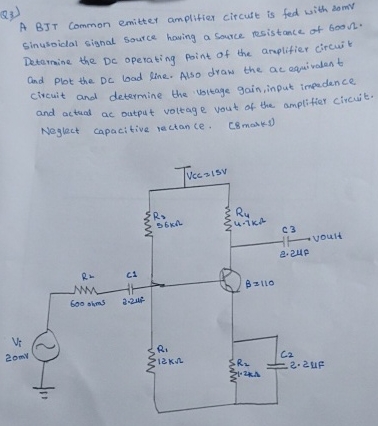 Q3)
A BJT Common emitter amplifier circuit is fed with 20mV
sinusoidal signal source having a source resistance of 600Ω.
Determine the DC operating point of the amplifier circuit
and Plot the DC load line. Also draw the ac equivalent
circuit and determine the voltage gain, input impedance
and actual ac output voltage vout of the amplifier circuit.
Neglect capacitive rectance. (8 marks)
Vcc=15V
R3
56KΩ
R4
4.7KΩ
C3
voult
2.2UF
RL
C1
600 ohms
2.2UF
B=110
Vi
20mV
R1
12KΩ
R2
1.2KΩ
C2
2.2UF